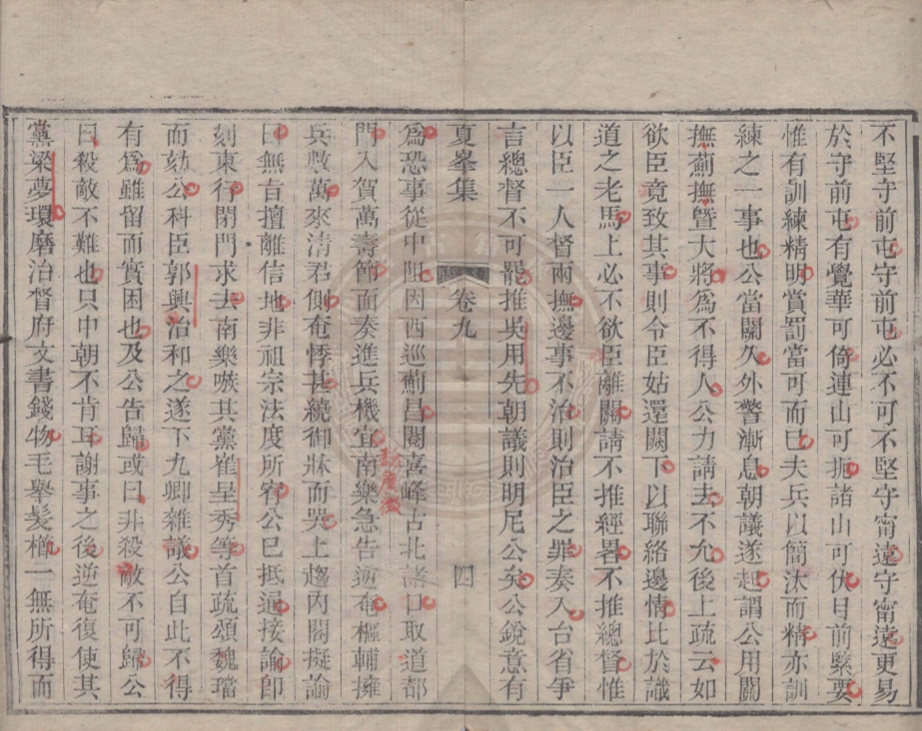 不堅守前屯守前屯必不可不堅守甯遠守甯遠更易
於守前屯有覺華可倚連山可扼諸山可伏目前緊要
惟有訓練精明賞罰當可而已夫兵以簡汰而精亦訓
練之一事也公當關久外警漸息朝議遂起謂公用關
撫薊撫暨大將爲不得人公力請去不允後上疏云如
欲臣竟致其事則令臣姑還關下以聯絡邊情比於識
道之老馬上必不欲臣離關請不推經畧不推總督惟
以臣一人督兩撫邊事不治則治臣之罪奏入台省爭
言總督不可罷推吳用先朝議則明尼公矣公銳意有
夏峯集 卷九 四
爲恐事從中阻因西巡薊昌閱喜峰古北諸口取道都
門入賀萬壽節面奏進兵機宜南樂急告逆奄樞輔擁
兵數萬來清君側奄悸甚繞御牀而哭上趨內閣擬諭
曰無旨擅離信地非祖宗法度所宥公已抵通接諭卽
刻東行閉門求去南樂嗾其黨崔呈秀等首疏頌魏璫
而劾公科臣郭興治和之遂下九卿雜議公自此不得
有爲雖留而實困也及公告歸或曰非殺敵不可歸公
曰殺敵不難也只中朝不肯耳謝事之後逆奄復使其
黨梁夢環磨治督府文書錢物毛舉髮櫛一無所得而